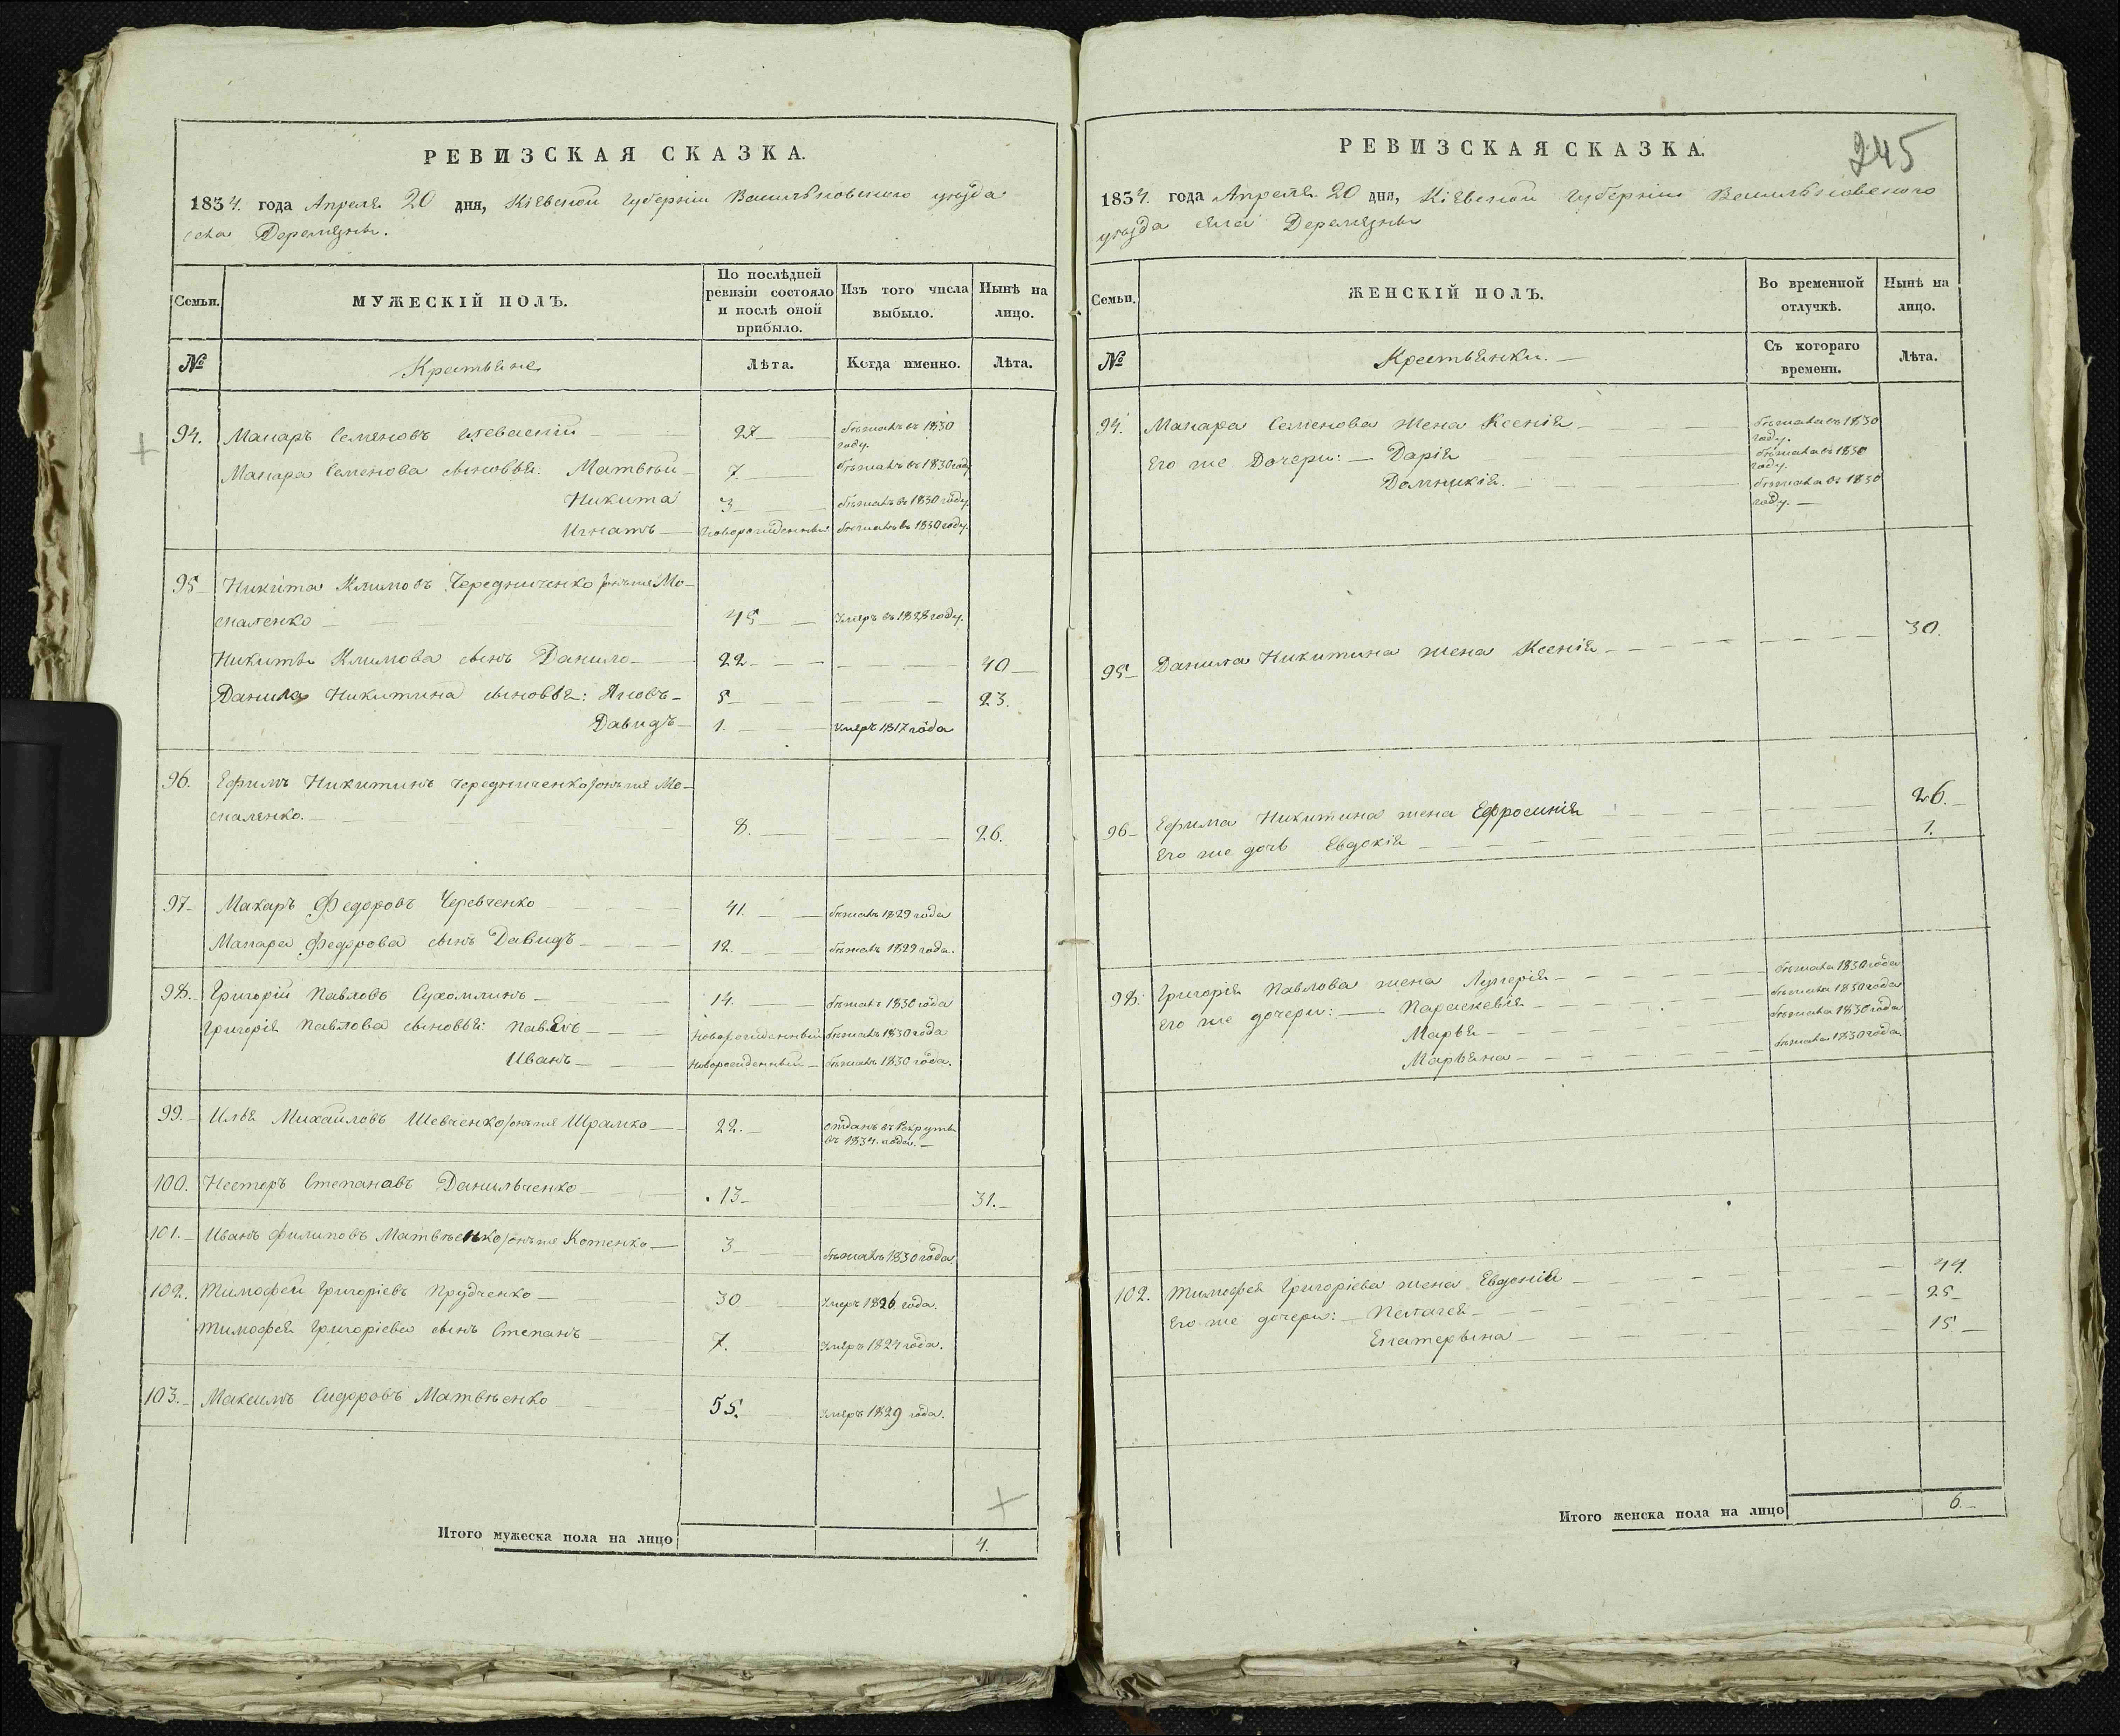 РЕВИЗСКАЯ СКАЗКА.
1834. года Апреля 20 дня, Кіевской Губерніи Васильковскаго уезда
села Деремезны.
Семьи.
МУЖЕСКІЙ ПОЛЪ.
По послѣдней ревизіи состояло и послѣ оной прибыло.
Изъ того числа выбыло.
Нынѣ на лицо.
№
Крестьяне
Лѣта.
Когда именно.
Лѣта.
94. Макаръ Семеновъ 27 бѣжалъ въ 1830 году.
Макара Семенова сыновья: Матвѣй 7. бѣжалъ въ 1830 году
Никита 3 бѣжалъ въ 1830 году.
Игнатъ Новорожденный бѣжалъ въ 1830 году.
95 Никита Климовъ Чередниченко онъ же Мо-
скаленко 45 умеръ въ 1828 году.
Никиты Климова сынъ Данило 22 40
Данила Никитина сыновья: Яковъ 5 23.
Давидъ 1. умеръ 1817 года
96. Ефимъ Никитинъ Чередниченко онъ же Мо-
скаленко. 8. 26.
97 Макаръ Федоровъ Черевченко 41. бѣжалъ 1829 года
Макара Федорова сынъ Давидъ 12. бѣжалъ 1829 года.
98. Григорій Павловъ Сухомлинъ 14. бѣжалъ 1830 года
Григорія Павлова сыновья: Павелъ Новорожденный бѣжалъ 1830 года
Иванъ Новорожденный бѣжалъ 1830 года.
99. Илья Михайловъ Шевченко онъ же Шрамко 22. отданъ въ Рекруты
въ 1834. года.
100. Несторъ Степановъ Данильченко 13 31.
101. Иванъ Филиповъ Матвѣенко онъ же Котенко 3 бѣжалъ 1830 года
102. Тимофей Григоріевъ Прудченко 30 умеръ 1826 года.
Тимофея Григоріева сынъ Степанъ 7. умеръ 1824 года.
103. Максимъ Сидоровъ Матвѣенко 55. умеръ 1829 года.
Итого мужеска пола на лицо 4.
245
РЕВИЗСКАЯ СКАЗКА.
1834. года Апреля 20 дня, Кіевской Губерніи Васильковскаго
уезда села Деремезны
Семьи.
ЖЕНСКІЙ ПОЛЪ.
Во временной отлучкѣ.
Нынѣ на лицо.
№
Крестьянки.
Съ котораго времени.
Лѣта.
94. Макара Семенова жена Ксенія бѣжала въ 1830 году.
Его же Дочери: Дарія бѣжала въ 1830 году.
Домникія. бѣжала въ 1830 году.
95 Данила Никитина жена Ксенія 30.
96 Ефима Никитина жена Ефросинія 26.
Его же дочь Евдокія 1.
98. Григорія Павлова жена Лукерія бѣжала 1830 года
Его же дочери: Параскевія бѣжала 1830 года
Марья бѣжала 1830 года
Марьяна бѣжала 1830 года
102. Тимофея Григоріева жена Евдокія 44.
Его же дочери: Пелагея 25
Екатерына 15
Итого женска пола на лицо 6.